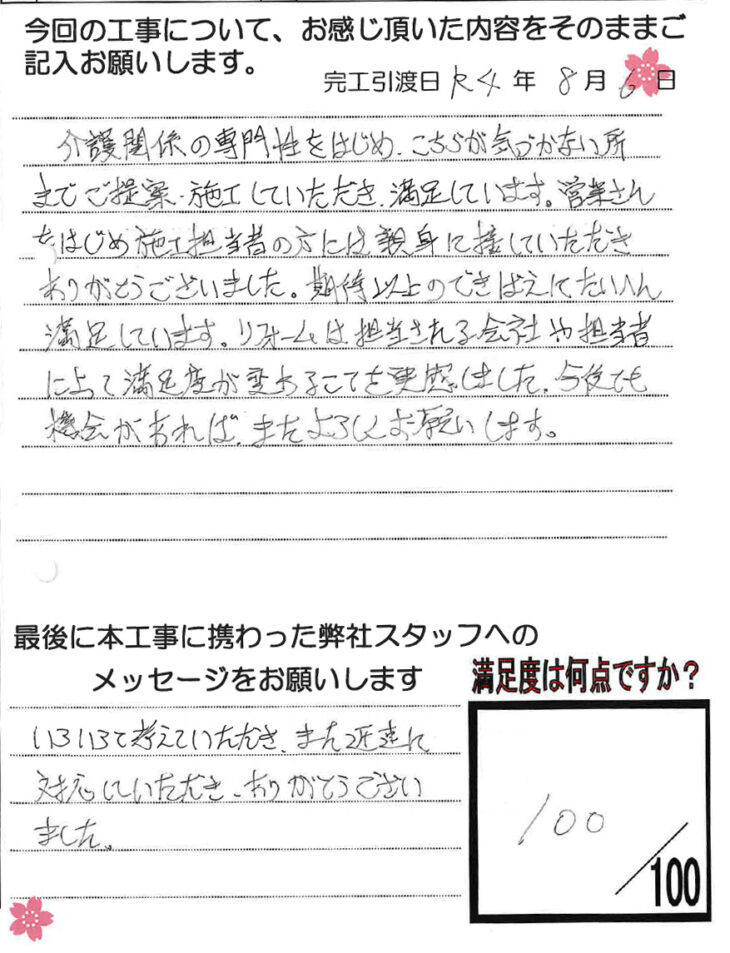 今回の工事について、お感じ頂いた内容をそのままご
記入お願いします。
完工引渡日 R4 年 8 月 6 日
介護関係の専門性をはじめ、こちらが気づかない所
までご提案、施工していただき、満足しています。営業さん
をはじめ施工担当者の方には親身に接していただき
ありがとうございました。期待以上のできばえでたいへん
満足しています。リフォームは担当される会社や担当者
によって満足度が変わることを実感しました。今後でも
機会があれば、またよろしくお願いします。
最後に本工事に携わった弊社スタッフへの
メッセージをお願いします
いろいろと考えていただき、また迅速に
対応していただき、ありがとうござい
ました。
満足度は何点ですか?
100
/100